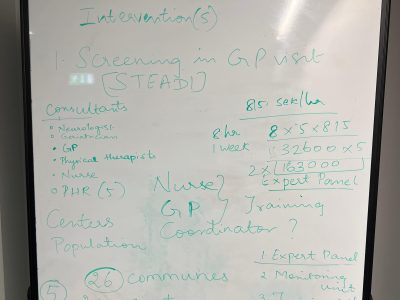 Intervention(s)
1. Screening in GP visit
[STEADI]
Consultants
Neurologist
Geriatrician
GP
Physical therapists
Nurse
PHR (5)
Centers
Population
Nurse
GP
Coordinator ?
Training
815 sek/hr
8hr 8 x 5 x 815
1 week 32600 x 5
2x 163000
Expert Panel
1 Expert Panel
2 Monitoring
unit
26 communes
5